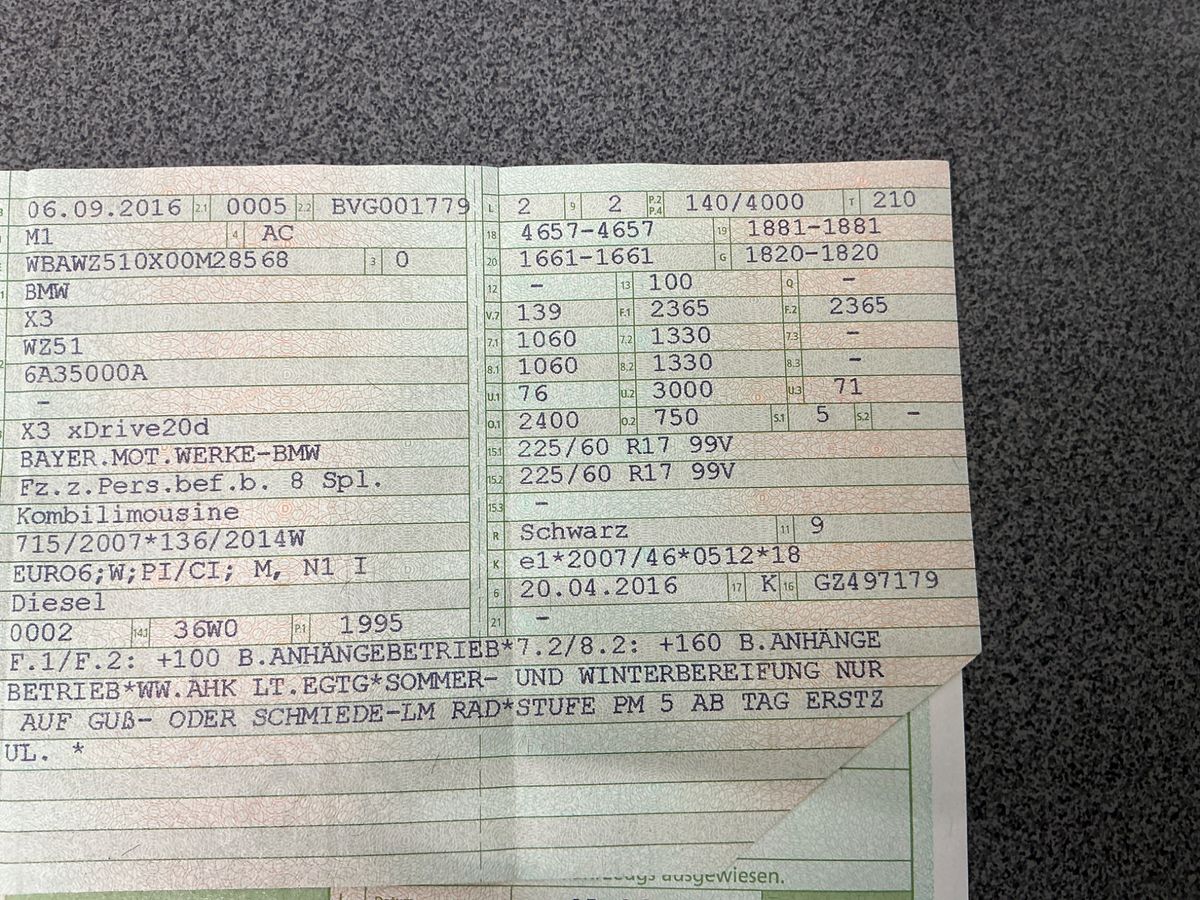 06.09.2016 2.1 0005 2.2 BVG001779
M1 4 AC
WBAWZ510X00M28568 3 0
BMW
X3
WZ51
6A35000A
–
X3 xDrive20d
BAYER.MOT.WERKE-BMW
Fz.z.Pers.bef.b. 8 Spl.
Kombilimousine
715/2007*136/2014W
EURO6;W;PI/CI; M, N1 I
Diesel
0002 14.1 36W0 P.1 1995
L 2 9 2 P.2 P.4 140/4000 T 210
18 4657-4657 19 1881-1881
20 1661-1661 G 1820-1820
12 – 13 100 Q –
V.7 139 F.1 2365 F.2 2365
7.1 1060 7.2 1330 7.3 –
8.1 1060 8.2 1330 8.3 –
U.1 76 U.2 3000 U.3 71
O.1 2400 O.2 750 S.1 5 S.2 –
15.1 225/60 R17 99V
15.2 225/60 R17 99V
15.3 –
R Schwarz 11 9
K e1*2007/46*0512*18
6 20.04.2016 17 K 16 GZ497179
21 –
F.1/F.2: +100 B.ANHÄNGEBETRIEB*7.2/8.2: +160 B.ANHÄNGE
BETRIEB*WW.AHK LT.EGTG*SOMMER- UND WINTERBEREIFUNG NUR
AUF GUß- ODER SCHMIEDE-LM RAD*STUFE PM 5 AB TAG ERSTZ
UL. *
ausgewiesen.